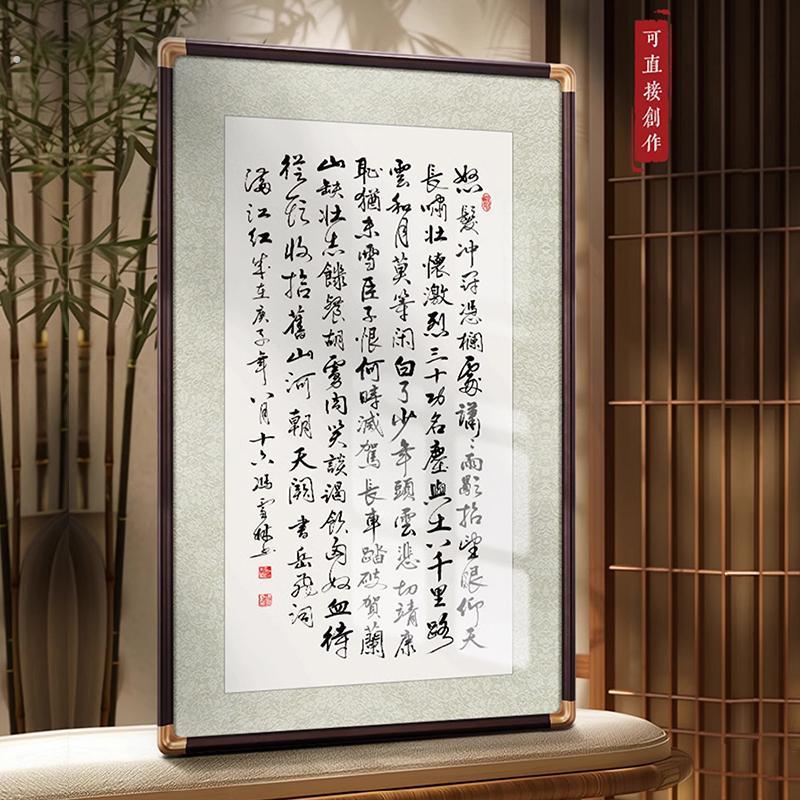 可直接創作
怒髮冲冠憑欄處瀟〻雨歇抬望眼仰天
長嘯壯懷激烈三十功名塵與土八千里路
雲和月莫等閑白了少年頭悲切靖康
恥猶未雪臣子恨何時滅駕長車踏破賀蘭
山缺壯志饑餐胡虜肉笑談渴飲匈奴血待
從頭收拾舊山河朝天闕書岳飛詞
滿江紅歲在庚子年八月十六馮雪林